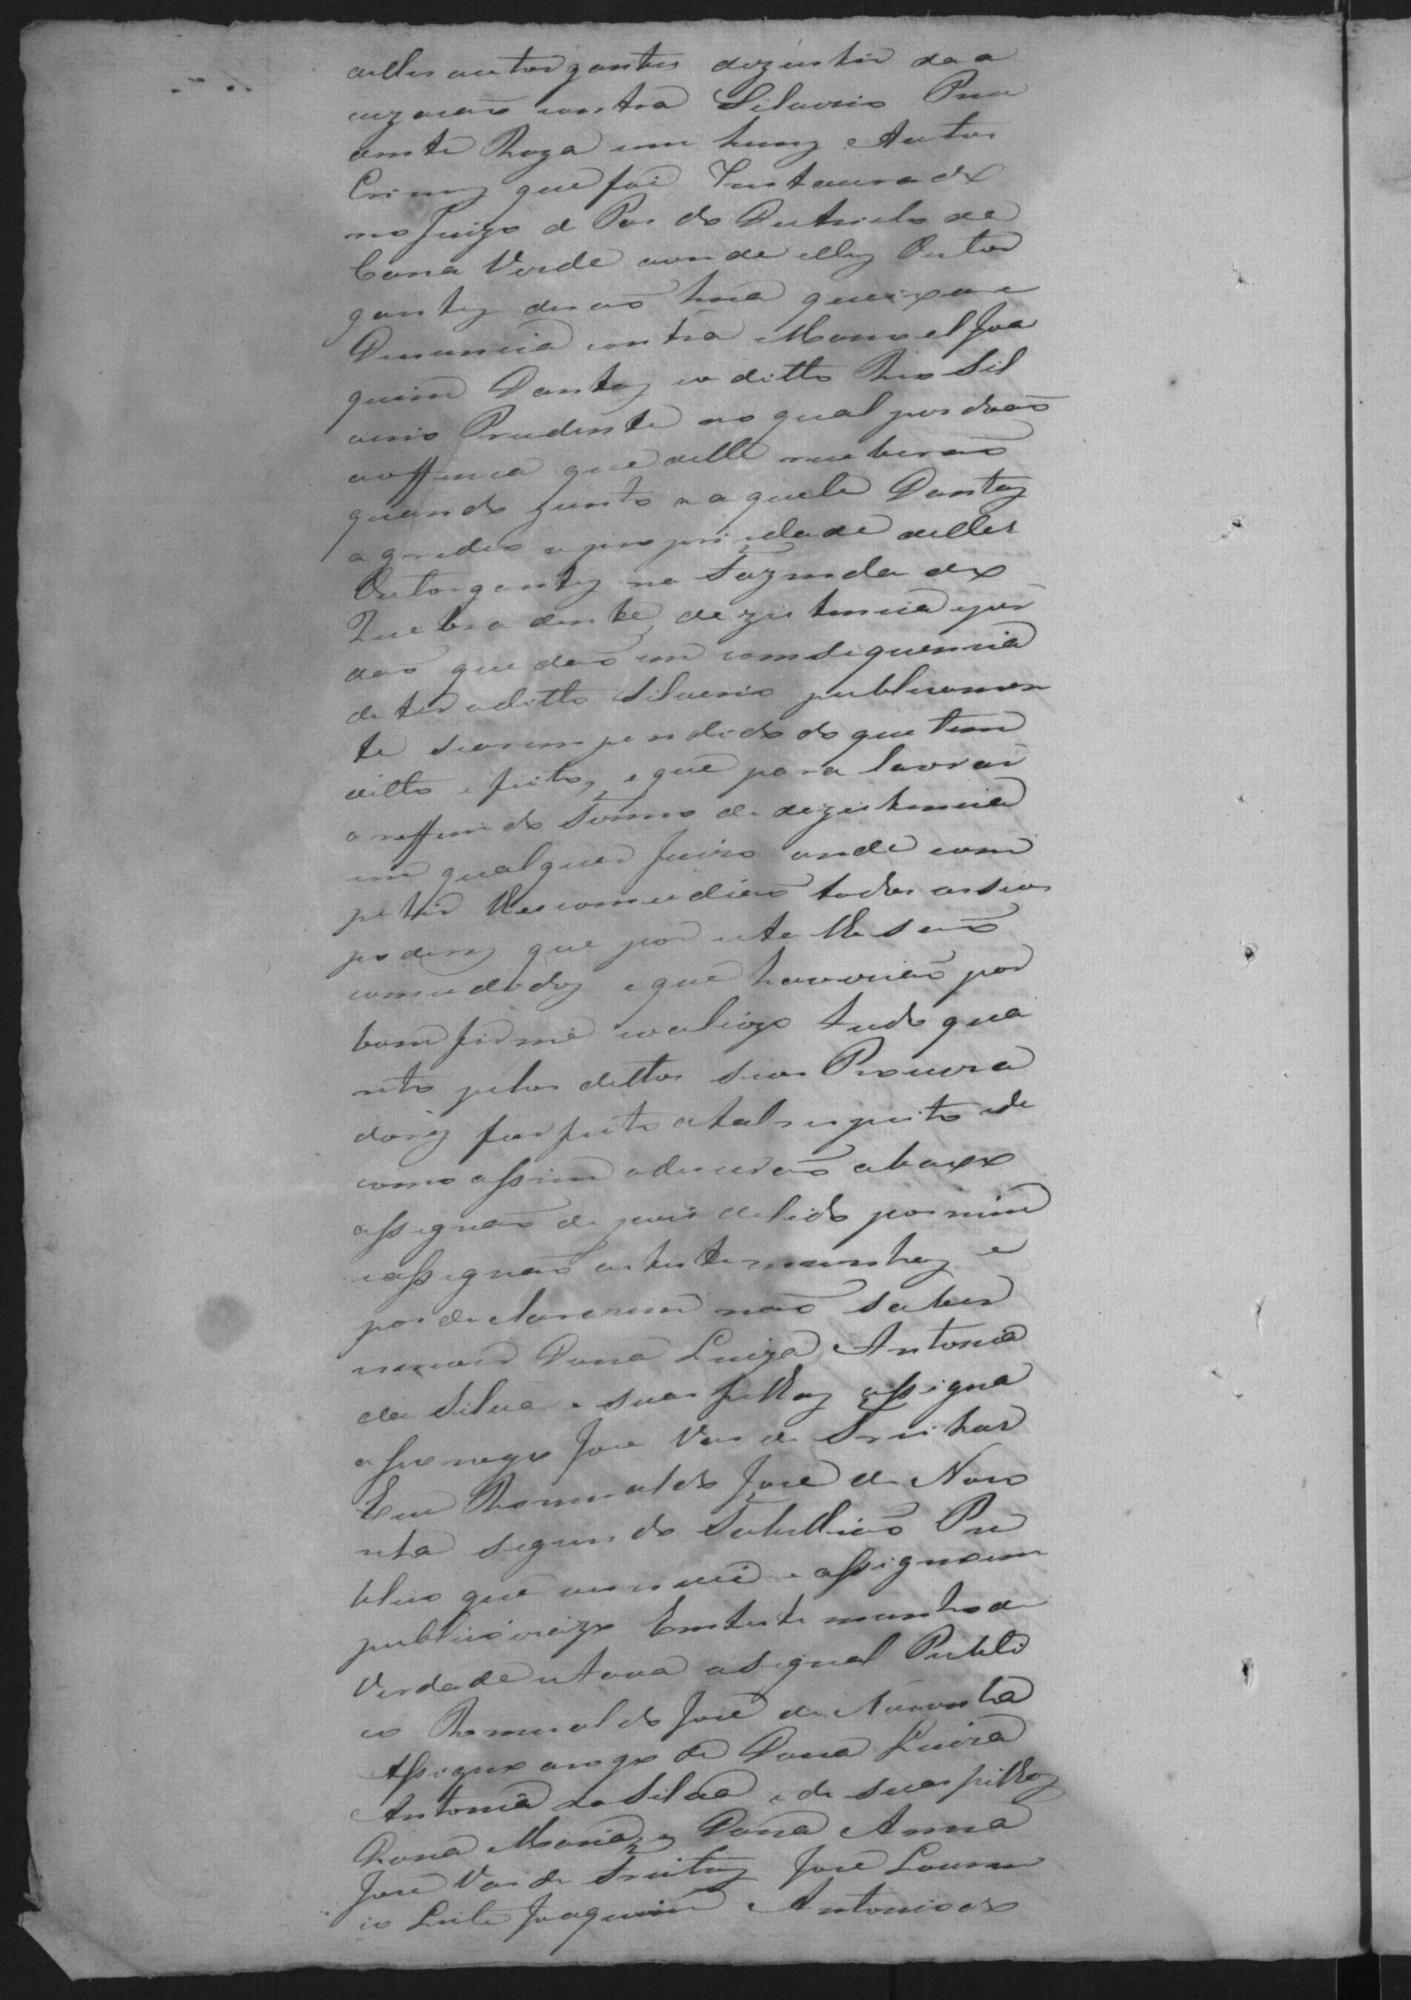 delles outorgantes dezistir da a
cuzacaõ contra Silverio Pru
dente em huns Autos
Crimes que foi Instaurado
no Juizo de Paz do Destricto de
Cana Verde aonde elles Outor
gantes deraõ huã queixa e
Denuncia contra Manoel Joa
quim Dantas e o ditto Reo Sil
verio Prudente ao qual perdoaõ
a offença que delle receberaõ
quando junto a aquele Dantas
agredio a propriedade delles
Outorgantes na Fazenda do
Quebra dente, dezistencia e per
daõ que daõ em comsequencia
de ter o ditto Silverio publicamen
te se arrependido do que tem
ditto e feito, e que para lavrar
o refferido Termo de dezistencia
em qualquer Juizo onde com
petir lhes comcediaõ todos os seos
poderes que por este lhe saõ
comcedidos e que haveriaõ por
bom firme e valiozo tudo qua
nto pelos dittos seos Procura
dores for feito a tal respeito e de
como assim o disceraõ abaxo
assignaõ depois de lido por mim
e assignaõ as testemunhas e
por declararem naõ saber
Dona Luiza Antonia
da Silva e suas filhas assigna
a seo rogo José Vas de Freitas
Eu Romualdo José de Noro
nha segundo Tabelliaõ Pu
blico que escrevi e assigno em
publico e razo Em testemunho de
Verdade estava o signal Publi
co Romualdo José de Noronha
Assigno a rogo de Dona Luiza
Antonia da Silva e de suas filhas
Dona Maria e Dona Anna
José Vas de Freitas José Louren
co Leite Joaquim Antonio do